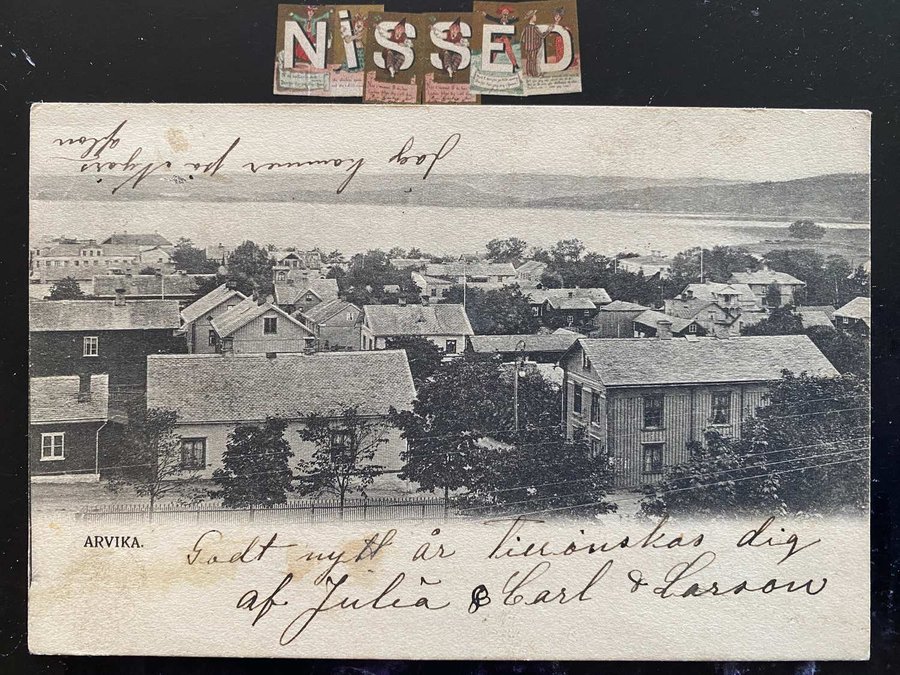 NiSSED
Jag kommer på Nyårs
afton
ARVIKA.
Godt nytt år Tillönskas dig
af Julia & Carl & Larson